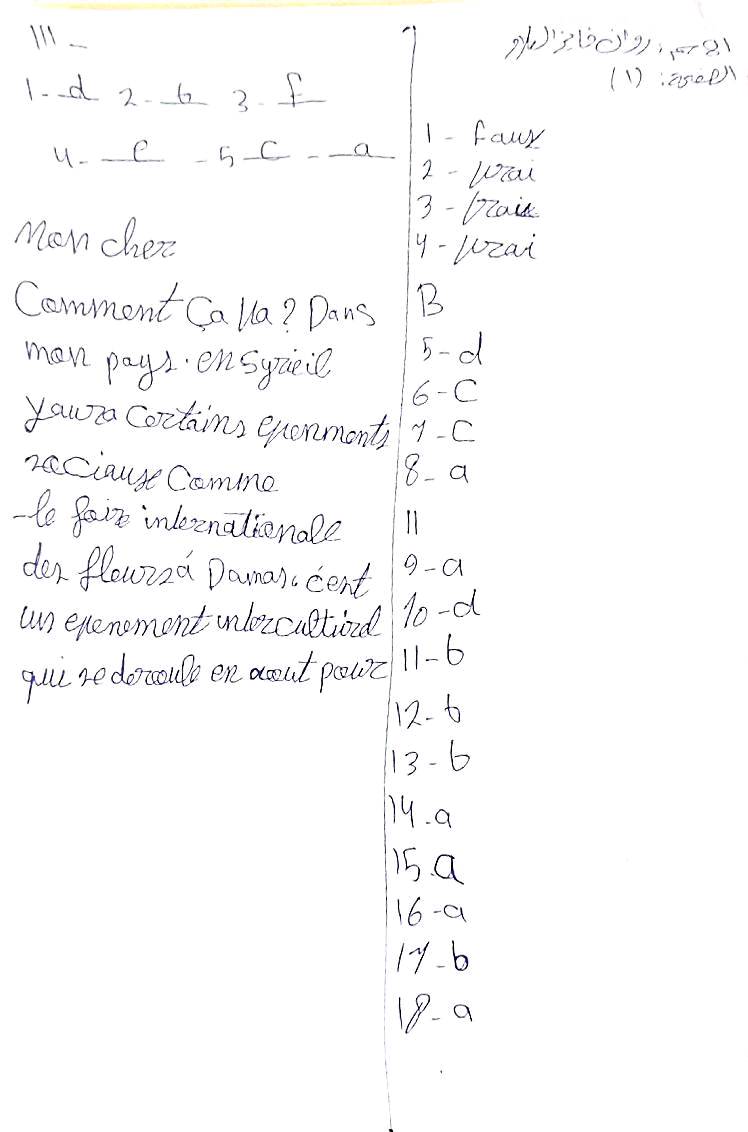 الاسم: روان فايز
الفئة: (١)
1
1 - faux
2 - vrai
3 - vrai
4 - vrai
B
5 - d
6 - C
7 - C
8 - a
11
9 - a
10 - d
11 - b
12 - b
13 - b
14 - a
15 a
16 - a
17 - b
18 - a
III -
1 - d 2 - b 3 - f
4 - e - 5 C - a
Mon cher
Comment Ça Va? Dans
mon pays. en Syrie il
y aura Certains evenments
Comme
- le foire internationale
des fleurs á Damas. c'est
un evenement
qui se deroule en aout pour